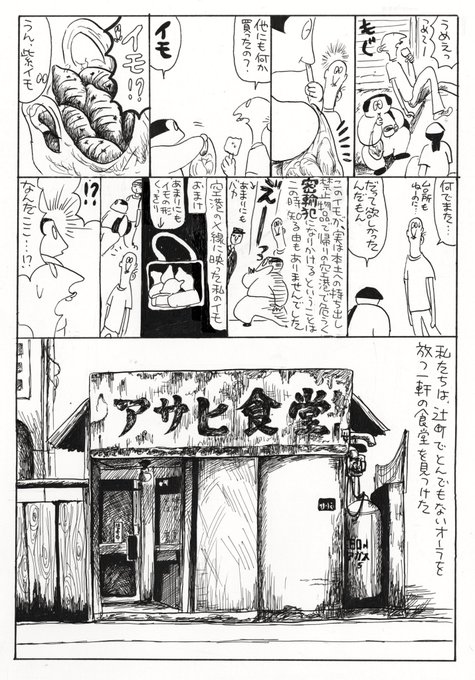 うめえっ
うめ〜っ
もじ
他にも何か
買ったの？
イモ
イモ!?
うん、紫イモ
何でまた…
だって欲しかっ
たんだもん
このイモが、実は本土への持ち出し
禁止物品で帰りの空港で危うく
密輸犯になりかけるということは
この時知る由もありませんでした
えーっ
あまりにも
バカ
おまけ
空港のX線に映った私のイモ
あまりにも
イモの形
くっきり
!?
なんだここ…!?
私たちは、辻町でとんでもないオーラを
放つ一軒の食堂を見つけた
アサヒ食堂